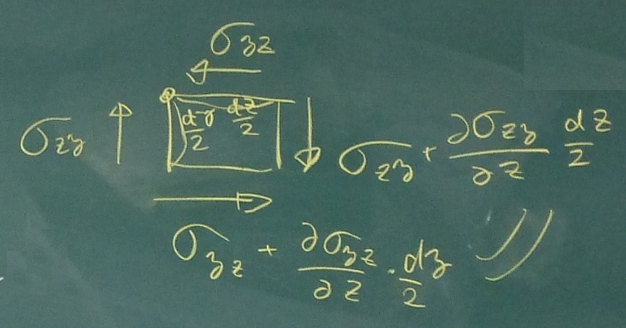 σ_yz
σ_zy dy/2 dz/2 σ_zy + ∂σ_zy/∂z dz/2
σ_yz + ∂σ_yz/∂z · dy/2